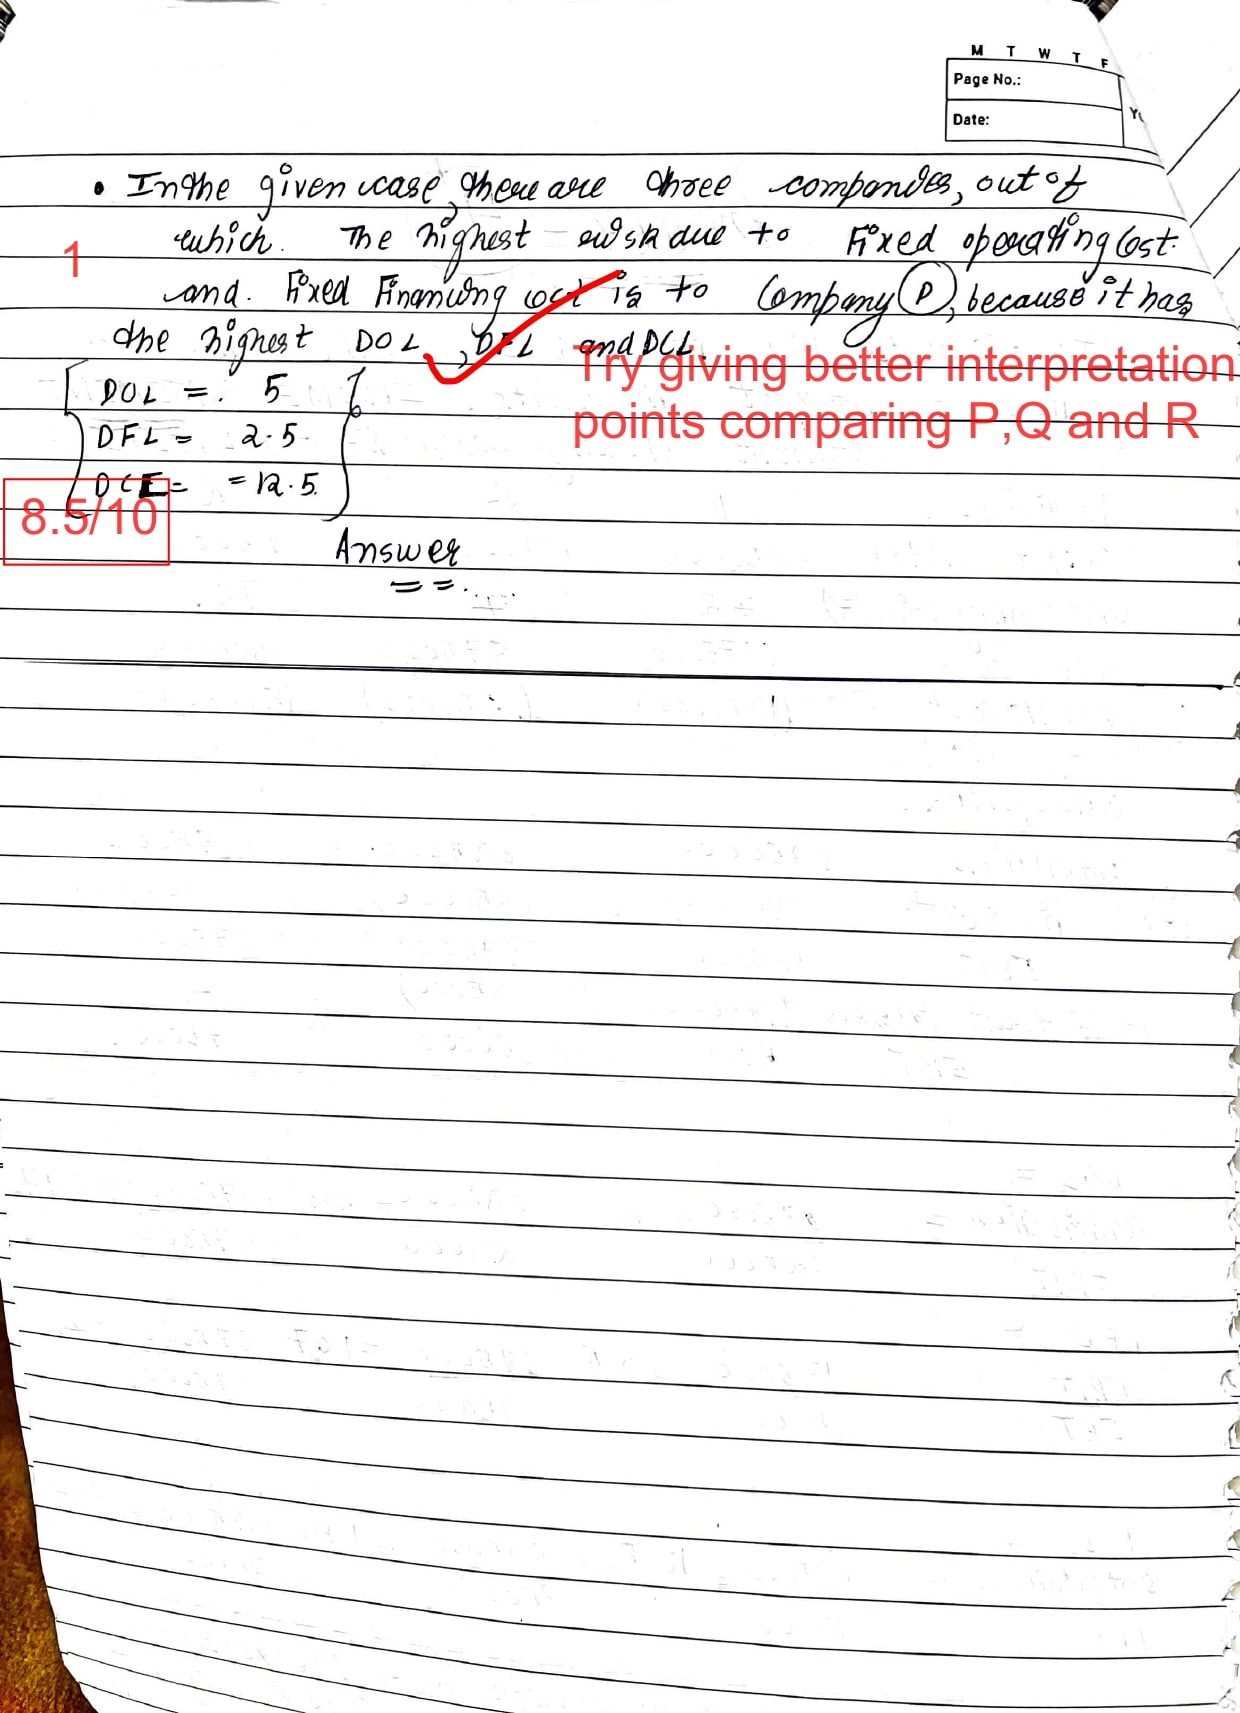 M T W T F
Page No.:
Date:
• In the given case, there are three companies, out of
which. The highest risk due to Fixed operating Cost.
1
and. Fixed Financing cost is to Company (P), because it has
the highest DOL, DFL and DCL.
Try giving better interpretation
points comparing P,Q and R
DOL =. 5
DFL = 2.5
DCL = = 12.5.
8.5/10
Answer